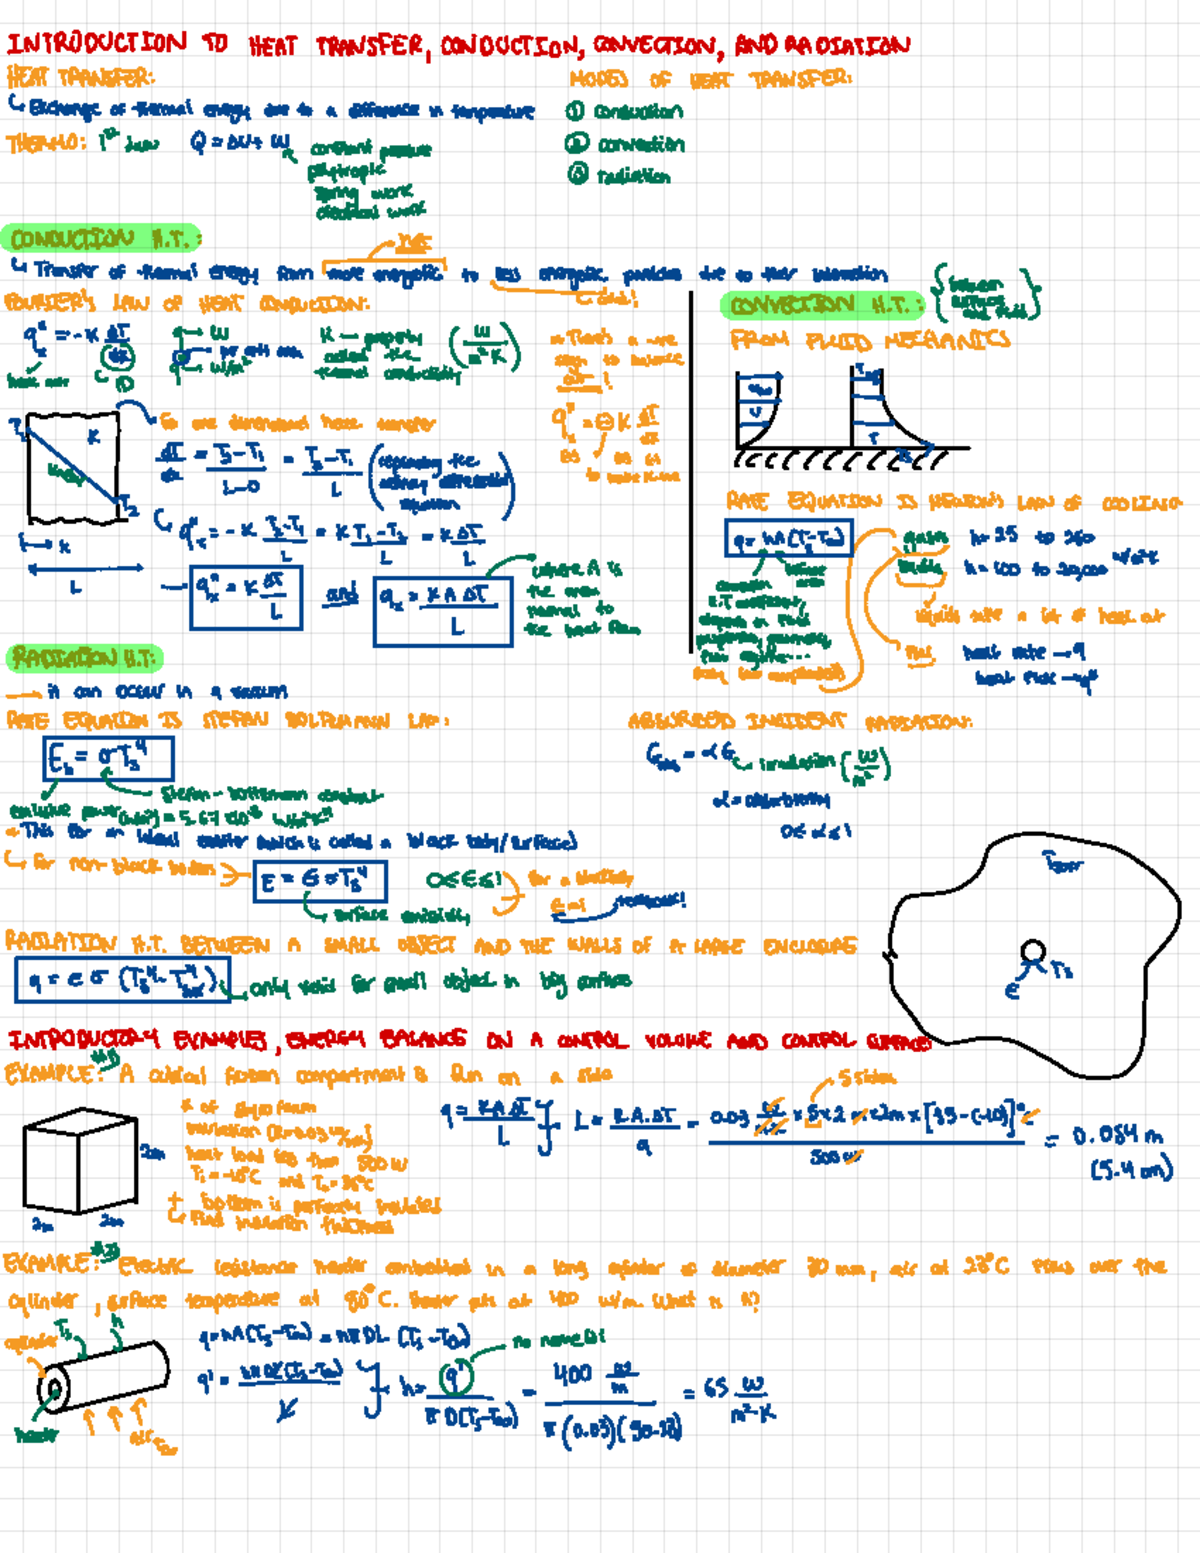 INTRODUCTION TO HEAT TRANSFER, CONDUCTION, CONVECTION, AND RADIATION
HEAT TRANSFER:
↳ Exchange of thermal energy due to a difference in temperature
THERMO: 1st law Q = ΔU + W
constant pressure
polytropic
spring work
electrical work
MODES OF HEAT TRANSFER:
① conduction
② convection
③ radiation
CONDUCTION H.T.:
hot
↳ Transfer of thermal energy from more energetic to less energetic particles due to their interaction
cold!
FOURIER'S LAW OF HEAT CONDUCTION:
q"x = -K dT/dx
heat rate
①
q → W
per unit area
W/m²
K → property
called the
thermal conductivity
(W/m²K)
There's a -ve
sign to balance
q"x = ⊖ K dT/dx
T1
K
T2
x
L
For one dimensional heat transfer
dT/dx = T2-T1/L-0 = T2-T1/L
↳ q"x = -K T2-T1/L = K T1-T2/L = K ΔT/L
→ q"x = K ΔT/L and qx = KAΔT/L
where A is
the area
normal to
the heat flow
CONVECTION H.T.: {between surface and fluid}
FROM FLUID MECHANICS
RATE EQUATION IS NEWTON'S LAW OF COOLING
q = hA(Ts-T∞)
surface area
convection
H.T. coefficient,
depends on fluid
properties, geometry,
flow regime...
gases h = 25 to 250
liquids h = 100 to 20,000 W/m²K
liquids take a lot of heat out
heat rate → q
heat flux → q"
RADIATION H.T:
→ it can occur in a vacuum
RATE EQUATION IS STEFAN BOLTZMANN LAW:
Eb = σTs⁴
Stefan-Boltzmann constant
emissive power
= 5.67 x10⁻⁸ W/m²K⁴
This for an ideal emitter which is called a black body/surface)
↳ for non-black bodies
E = ϵσTs⁴
0≤ϵ≤1
for a blackbody
ϵ=1
↳ surface emissivity
ABSORBED INCIDENT RADIATION:
Gabs = αG
irradiation (W/m²)
α = absorptivity
0≤α≤1
RADIATION H.T. BETWEEN A SMALL OBJECT AND THE WALLS OF A LARGE ENCLOSURE
q = ϵσ(Ts⁴-Tsur⁴)
only valid for small object in big surface
Tsurr
Ts
ϵ
INTRODUCTORY EXAMPLES, ENERGY BALANCE ON A CONTROL VOLUME AND CONTROL SURFACE
EXAMPLE: #1 A cubical frozen compartment is 2m on a side
2m
2m
2m
heat load less than 500 W
Ti = -10°C and To = 35°C
+ bottom is perfectly insulated
↳ Find insulation thickness
5 sides
q = KAΔT/L
L = KAΔT/q = 0.03 × 5 × 2m × 2m × [35-(-10)]°C / 500W = 0.054 m
(5.4 cm)
EXAMPLE: #2 Electric resistance heater embedded in a long cylinder of diameter 30 mm, air at 25°C flows over the
cylinder, surface temperature at 90°C. heater puts out 400 W/m. What is h?
cylinder
Ts
h
heater
air T∞
q = hA(Ts-T∞) = hπDL (Ts-T∞)
q' = hπDL(Ts-T∞)/L
h = q'/πD(Ts-T∞) = 400 W/m / π(0.03)(90-25) = 65 W/m²·K